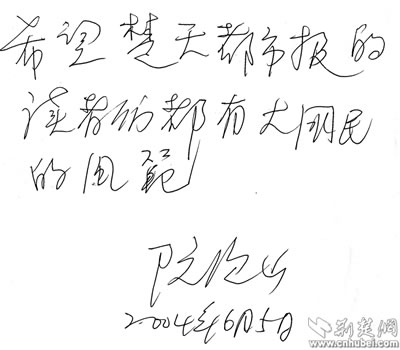 希望楚天都市报的
读者们都有大国民
的風範
阮次山
2004年6月5日
荆楚网
www.cnhubei.com